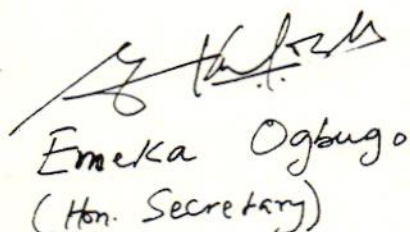 Emeka Ogbugo
(Hon. Secretary)